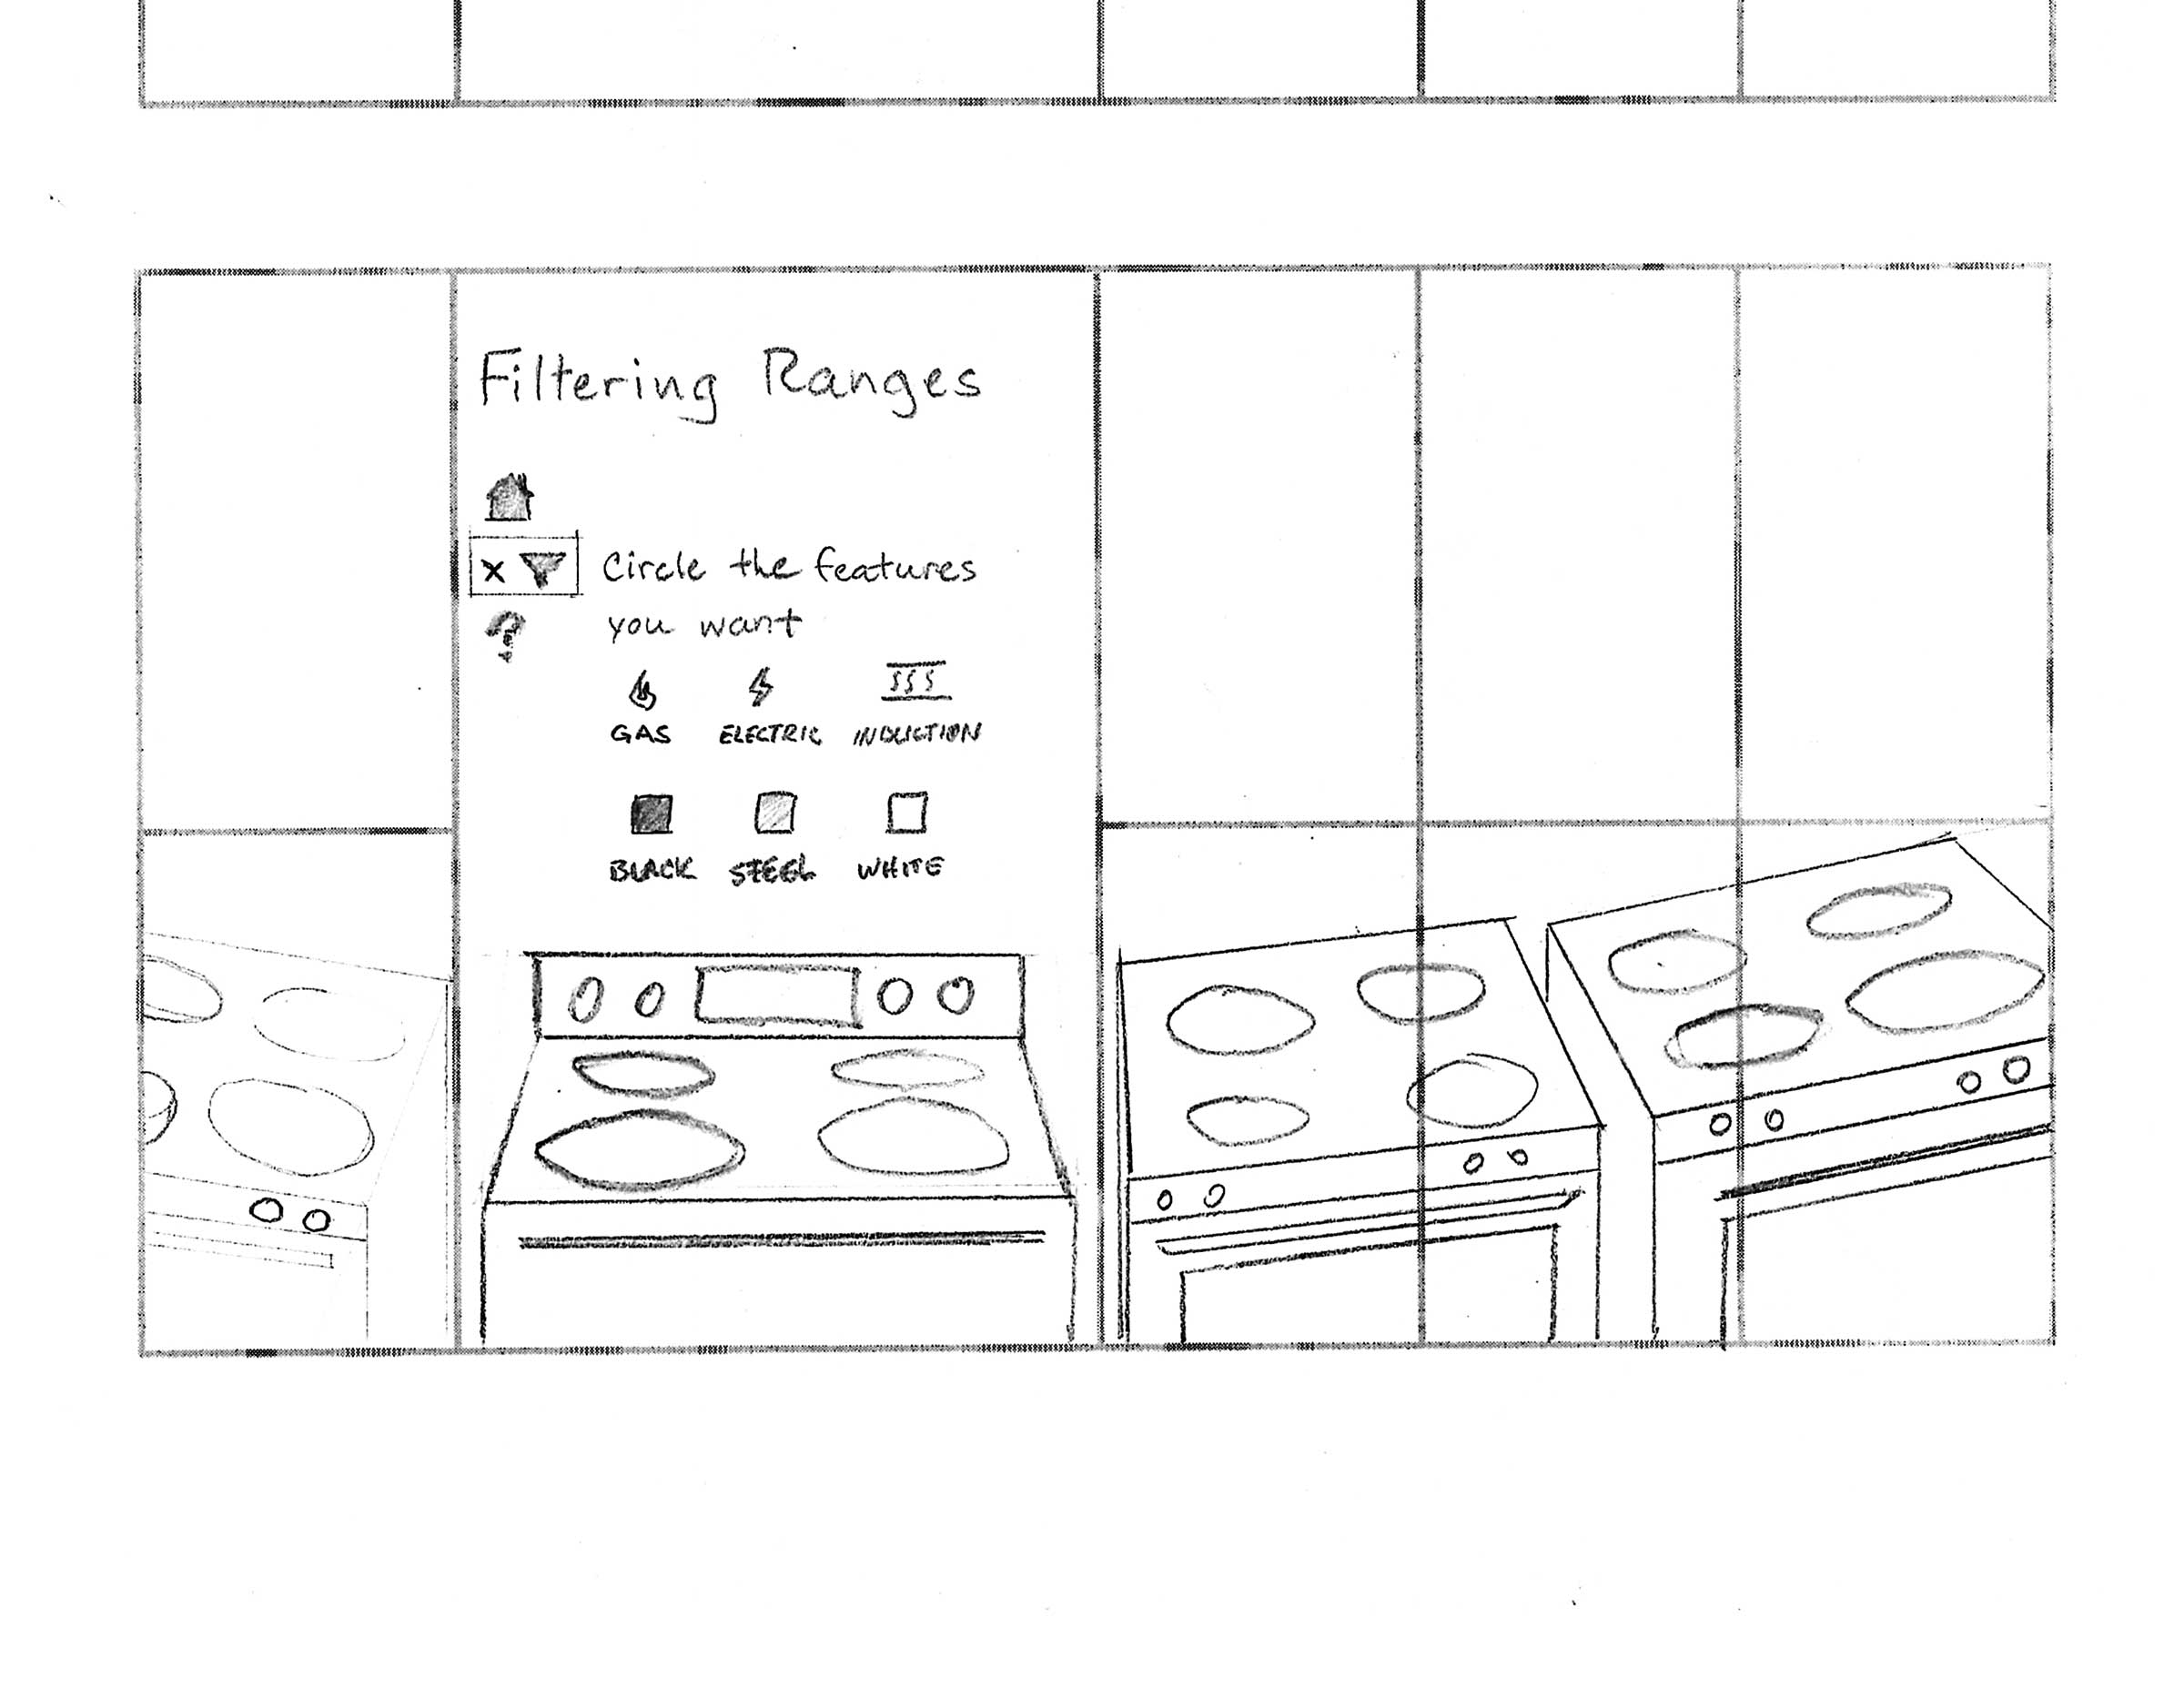 Filtering Ranges
x Circle the features
? you want
GAS ELECTRIC INDUCTION
BLACK STEEL WHITE